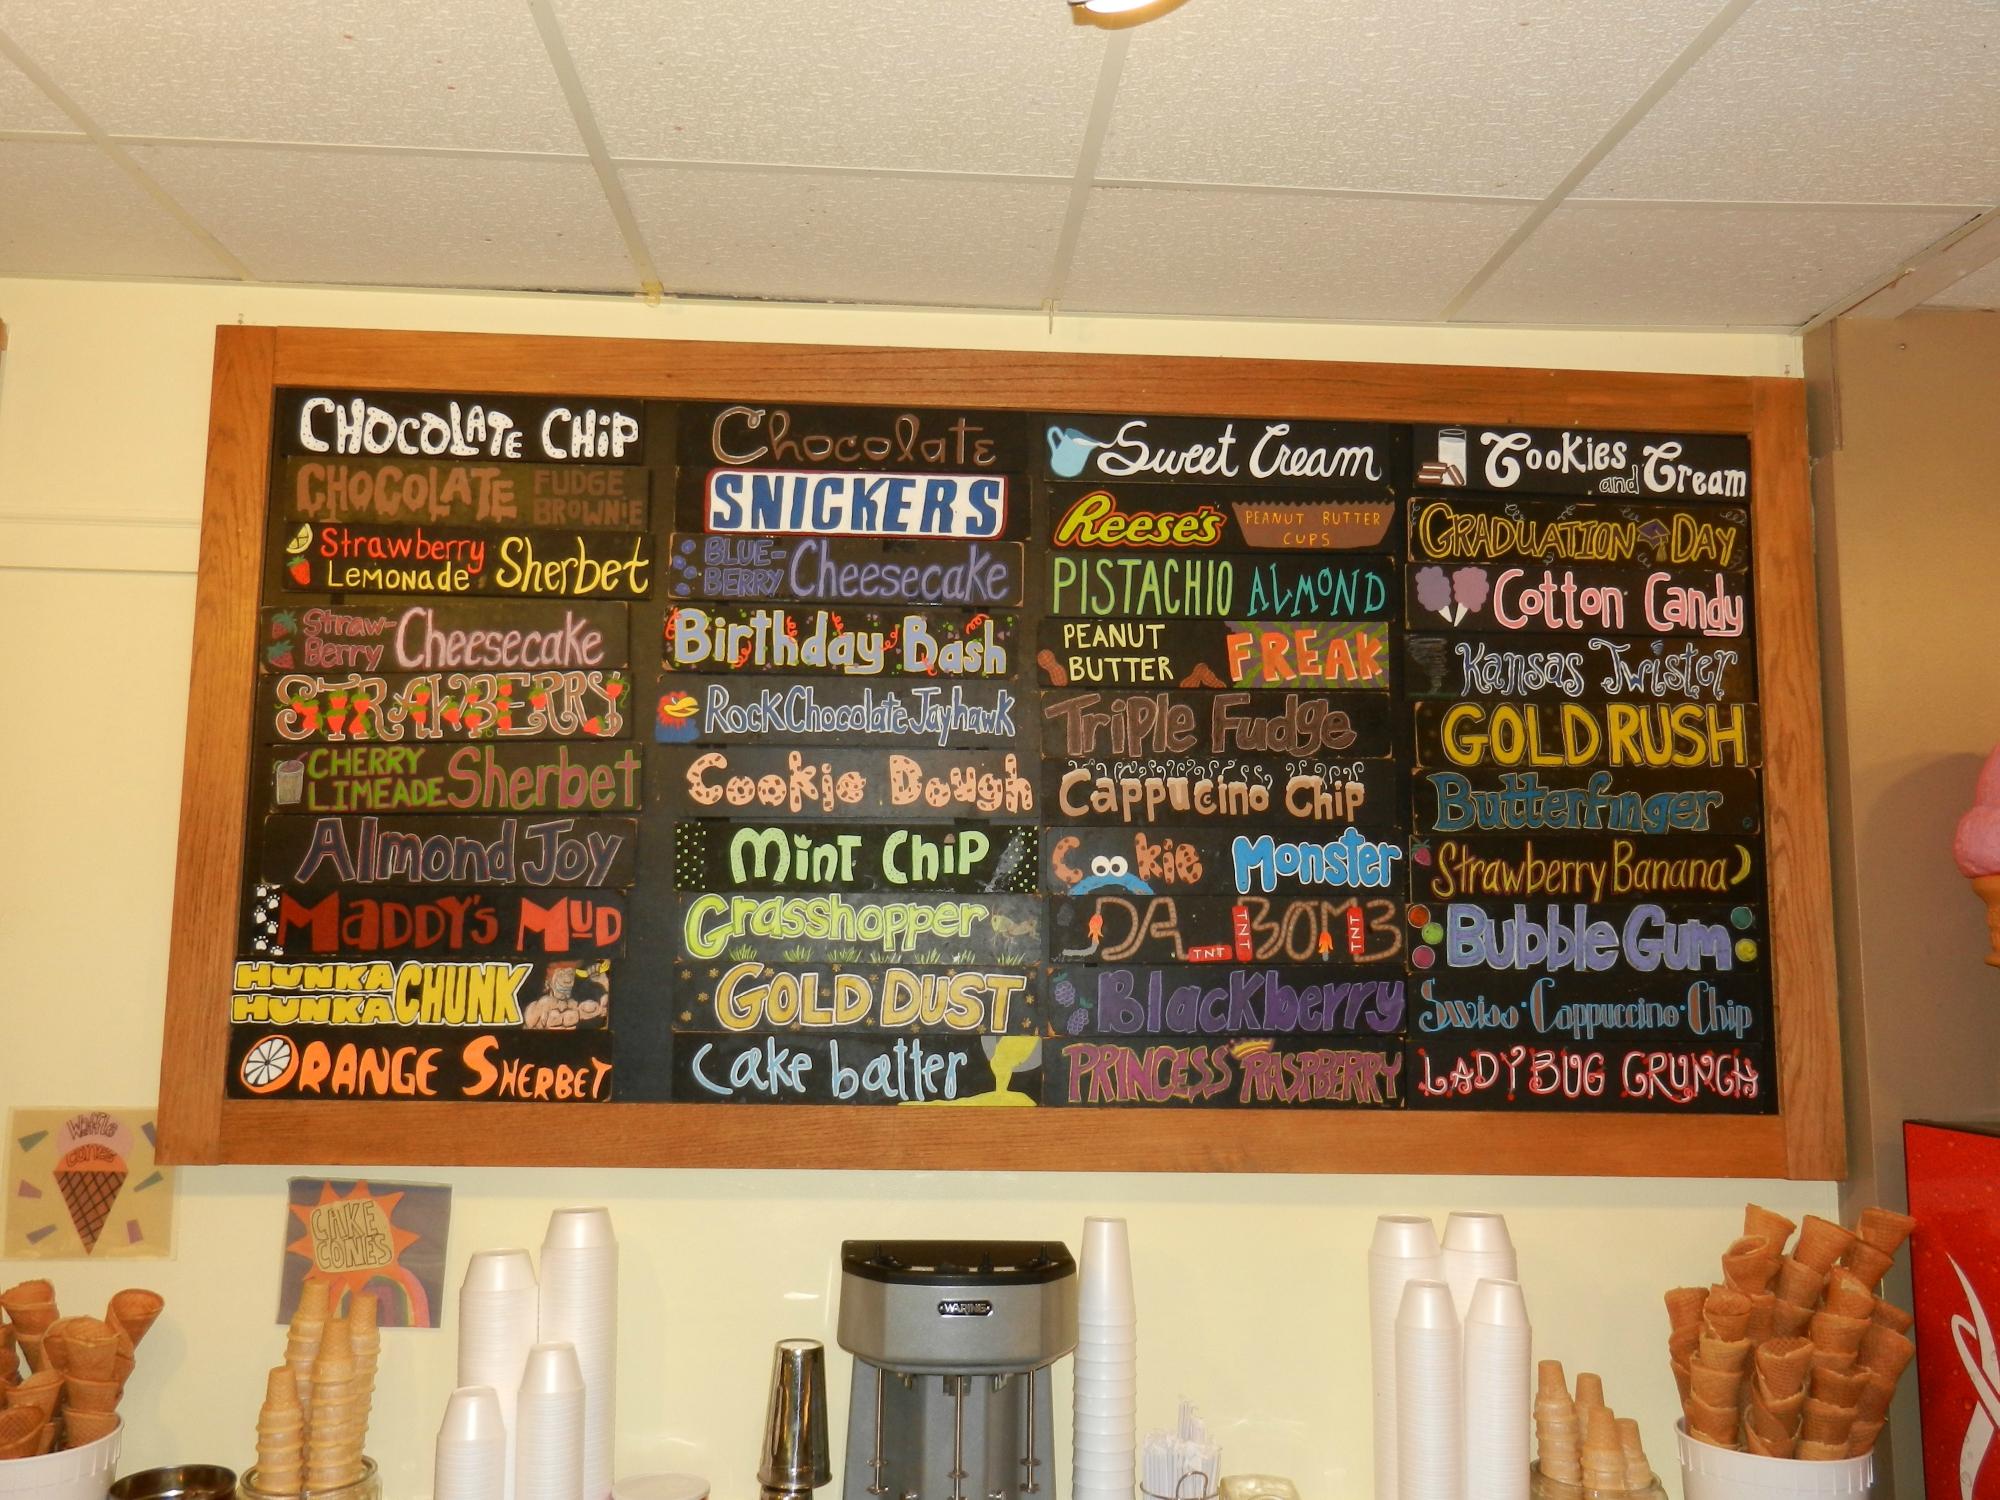 CHOCOLATE CHiP
CHOCOLATE FUDGE BROWNIE
Strawberry Lemonade Sherbet
Straw-Berry Cheesecake
STRAWBERRY
CHERRY LIMEADE Sherbet
Almond Joy
MADDY'S MUD
HUNKA HUNKA CHUNK
ORANGE SHERBET
Chocolate
SNICKERS
BLUE-BERRY Cheesecake
Birthday Bash
Rock Chocolate Jayhawk
Cookie Dough
MiNT CHiP
Grasshopper
GOLD DUST
Cake batter
Sweet Cream
Reese's PEANUT BUTTER CUPS
PISTACHIO ALMOND
PEANUT BUTTER FREAK
Triple Fudge
Cappuccino Chip
Cookie Monster
DA BOMB
TNT TNT TNT
Blackberry
PRINCESS RASPBERRY
Cookies and Cream
GRADUATION DAY
Cotton Candy
Kansas Twister
GOLD RUSH
Butterfinger
Strawberry Banana
Bubble Gum
Swiss·Cappuccino·Chip
LADY BUG CRUNCH
Waffle
cones
CAKE
CONES
WARING